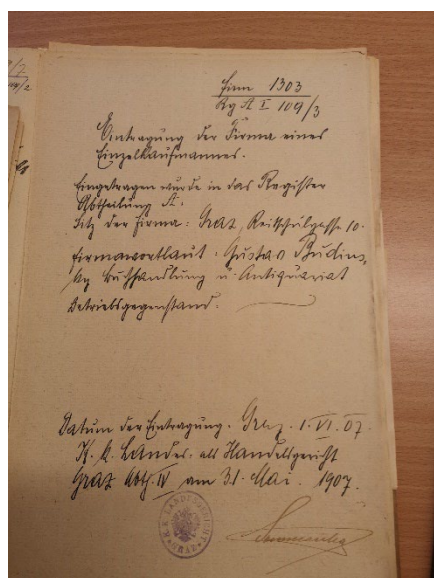 Firm 1303
Rg A I 109/3
Eintragung der Firma eines
Einzelkaufmannes.
Eingetragen wurde in das Register
Abtheilung A:
Sitz der Firma: Graz, Reitschulgasse 10.
Firmawortlaut: Gustav Budins-
ky Buchhandlung u. Antiquariat
Betriebsgegenstand:
Datum der Eintragung. Graz. 1. VI. 07.
K. k. Landes- als Handelsgericht
Graz Abth. IV am 31. Mai. 1907.
K.K. LANDESGERICHT